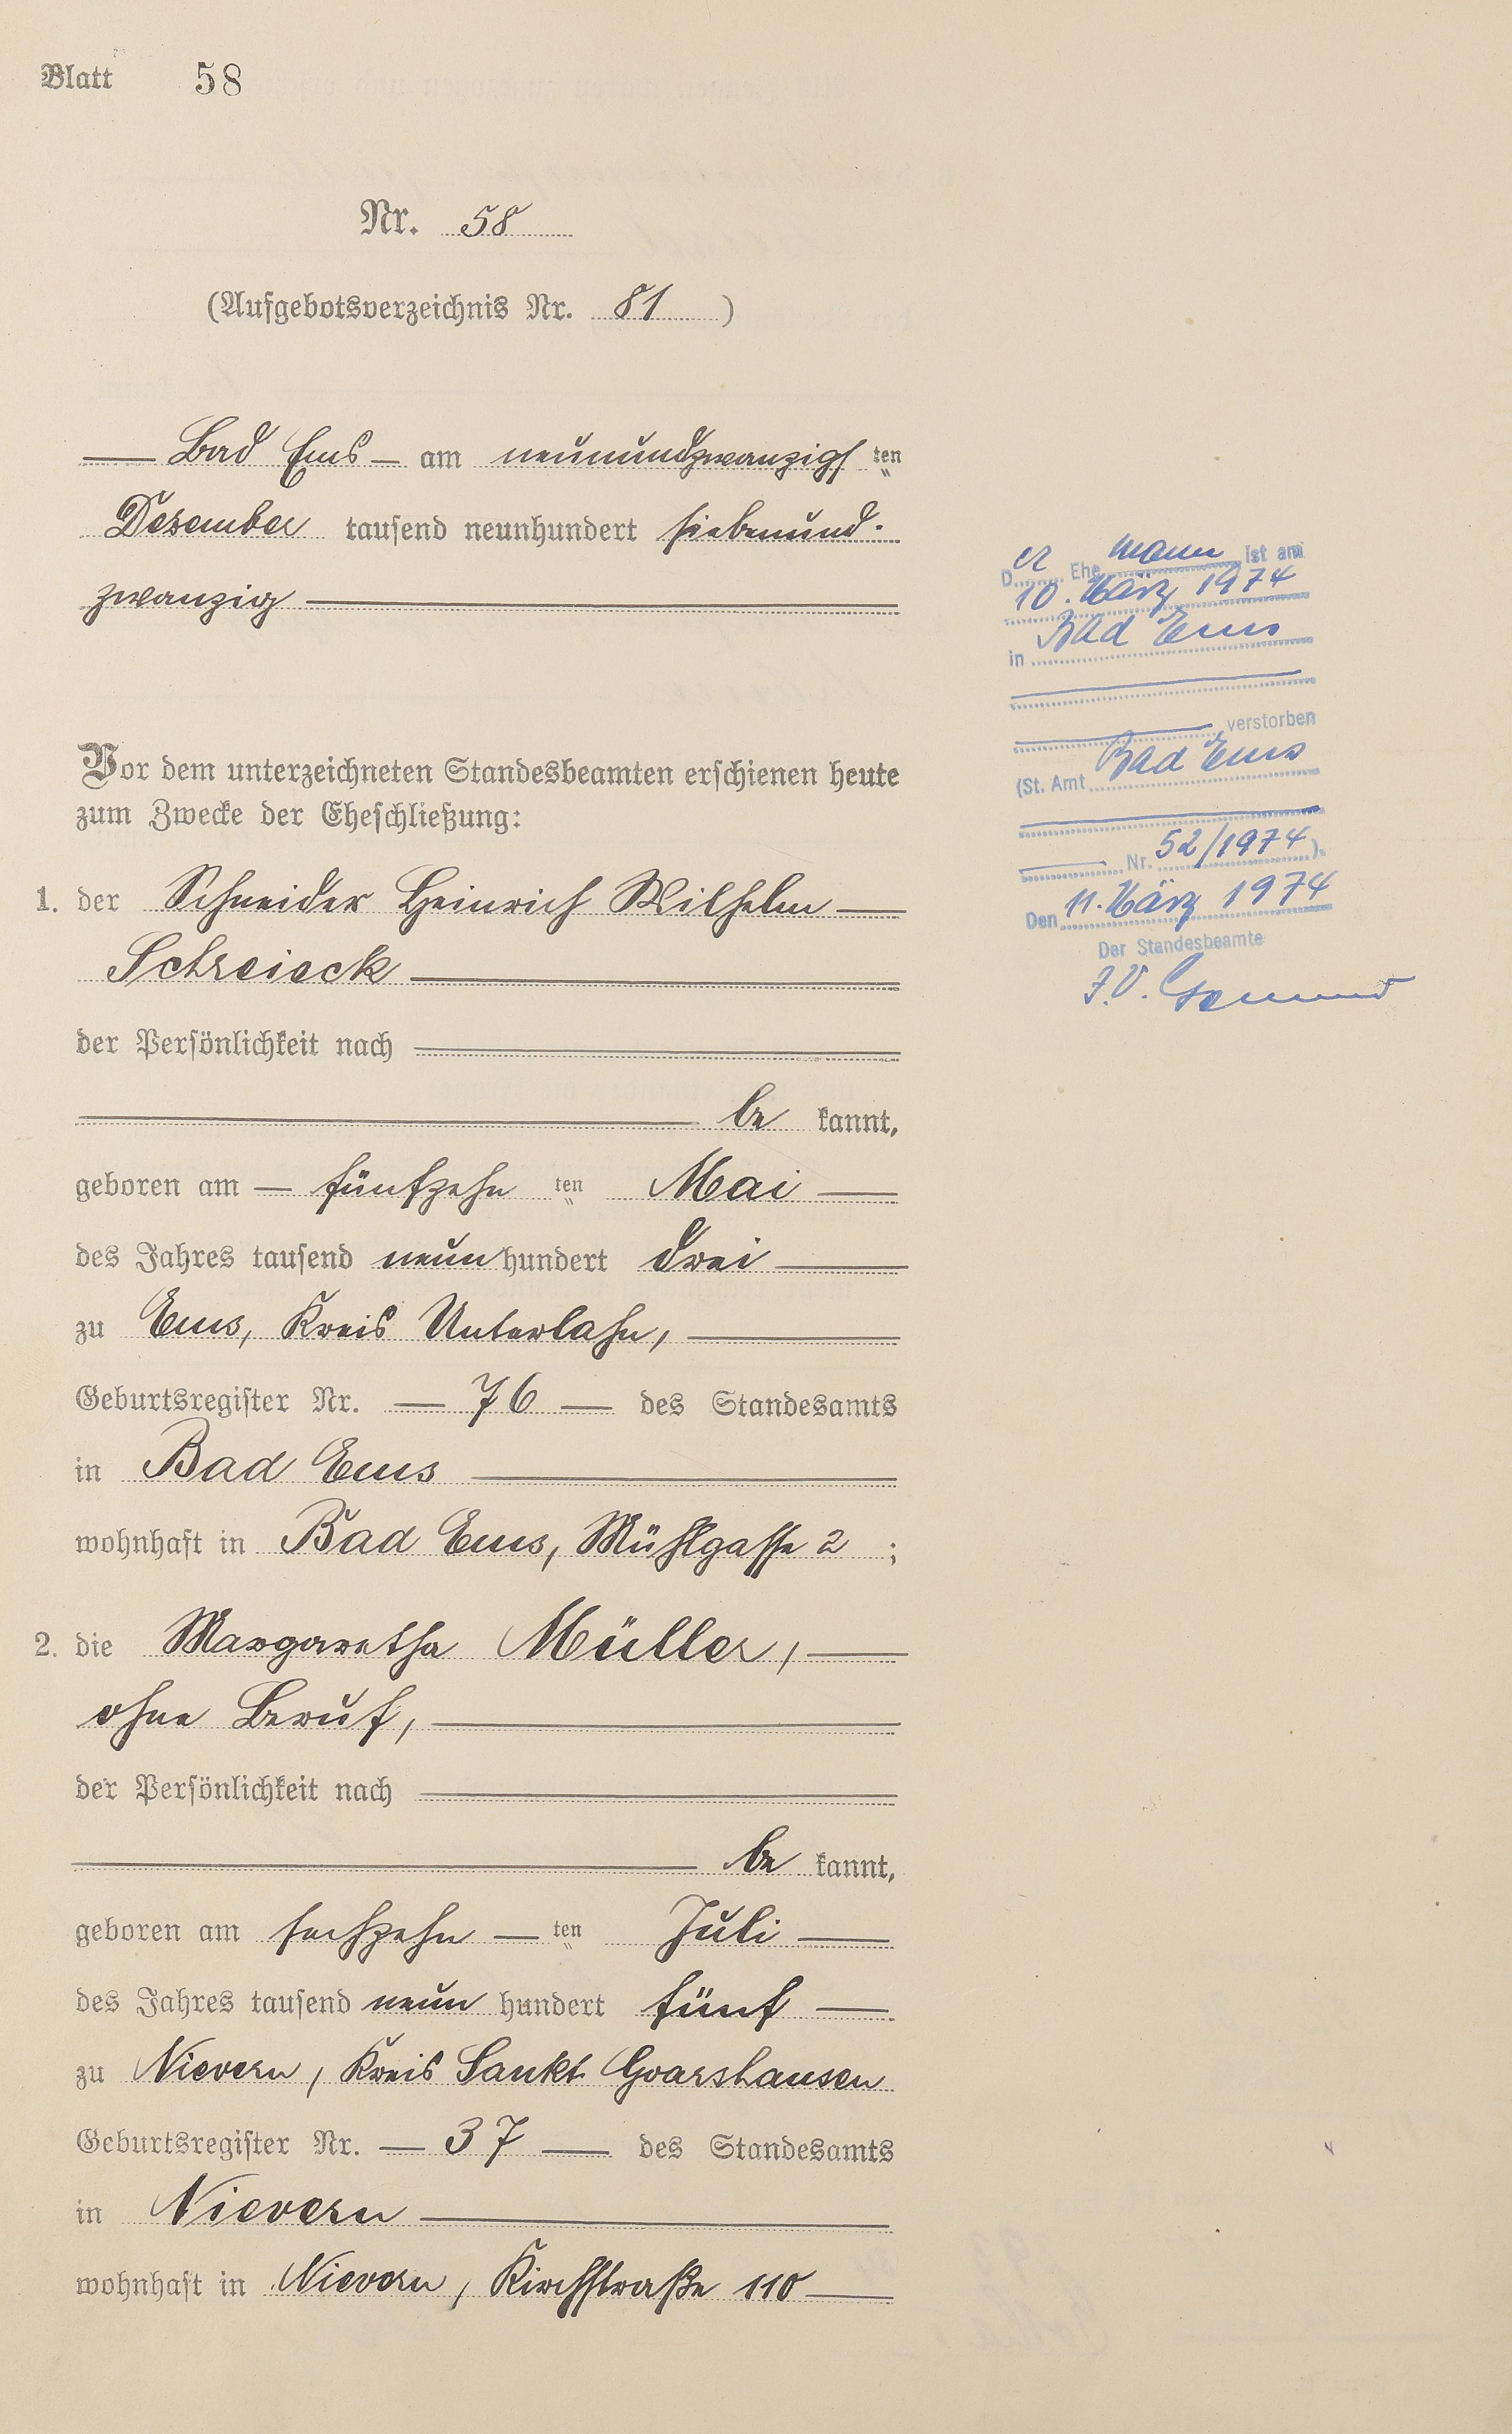 Blatt 58
Nr. 58
(Aufgebotsverzeichnis Nr. 81 )
Bad Ems am neunundzwanzigsten
Dezember tausend neunhundert siebenund-
zwanzig
Vor dem unterzeichneten Standesbeamten erschienen heute
zum Zwecke der Eheschließung:
1. der Schneider Heinrich Wilhelm
Schreieck
der Persönlichkeit nach
be kannt,
geboren am fünfzehn ten Mai
des Jahres tausend neun hundert drei
zu Ems, Kreis Unterlahn,
Geburtsregister Nr. 76 des Standesamts
in Bad Ems
wohnhaft in Bad Ems, Mühlgasse 2 ;
2. die Margaretha Müller,
ohne Beruf,
der Persönlichkeit nach
be kannt,
geboren am sechzehn ten Juli
des Jahres tausend neun hundert fünf
zu Nievern, Kreis Sankt Goarshausen
Geburtsregister Nr. 37 des Standesamts
in Nievern
wohnhaft in Nievern, Kirchstraße 110
Der Ehemann ist am
10. März 1974
in Bad Ems
verstorben
(St. Amt Bad Ems
Nr. 52/1974).
Den 11. März 1974
Der Standesbeamte
J.V.